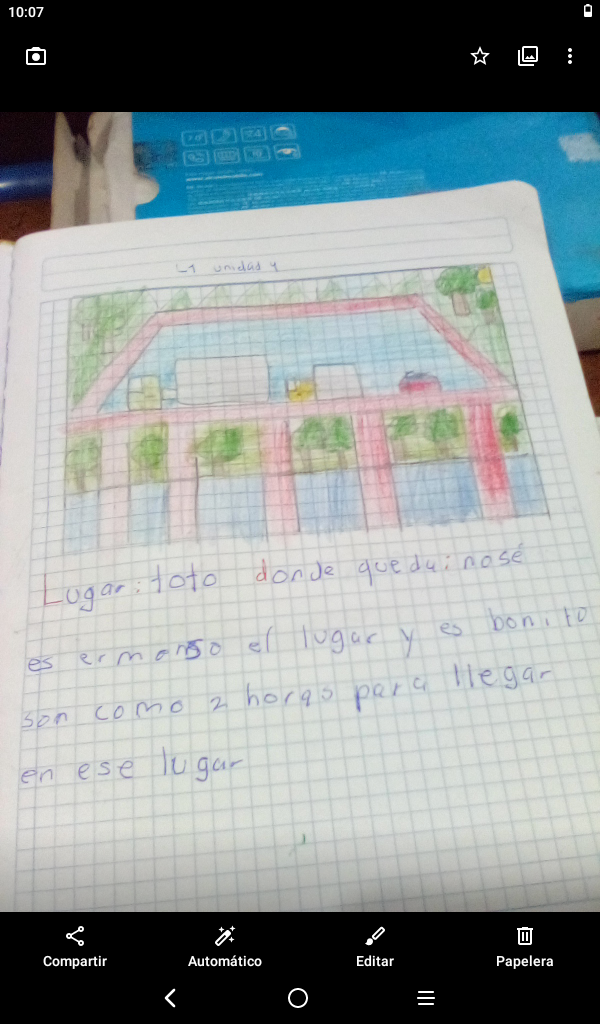 10:07
L1 unidad 4
Lugar: toto donde queda: nosé
es ermonso el lugar y es bonito
son como 2 horas para llegar
en ese lugar
Compartir
Automático
Editar
Papelera